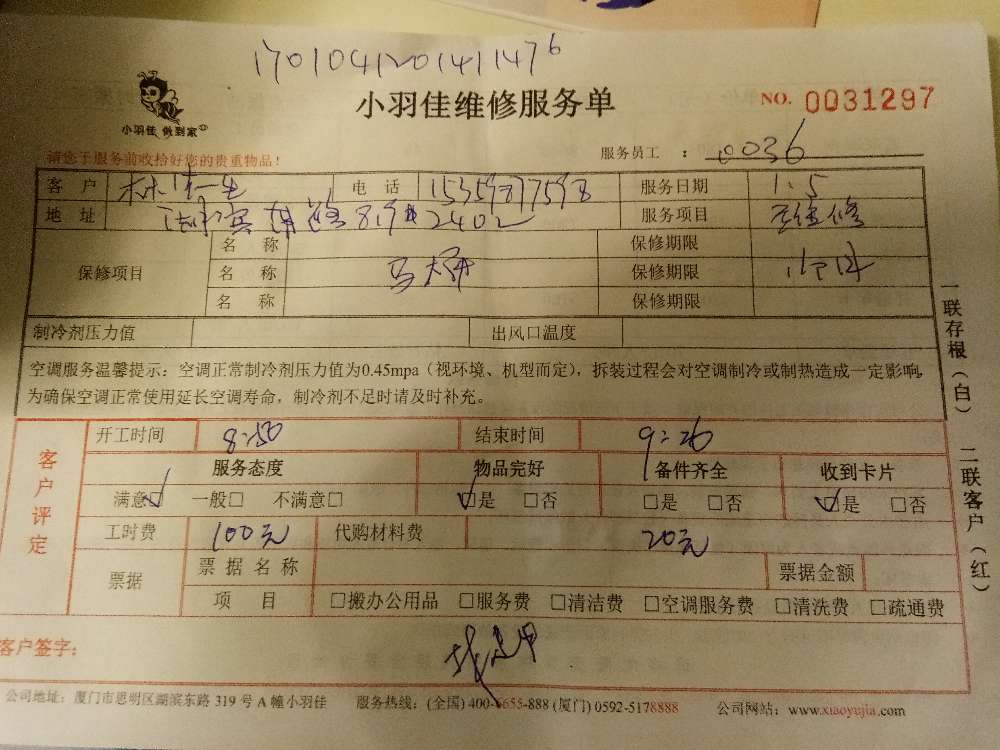 170104120141476
小羽佳 做到家
小羽佳维修服务单
NO. 0031297
请您于服务前收拾好您的贵重物品!
服务员工 : 0036
客 户 林先生 电 话 15359877598 服务日期 1.5
地 址 2402 服务项目 维修
名 称 保修期限
保修项目 名 称 马大姐 保修期限
名 称 保修期限
制冷剂压力值 出风口温度
空调服务温馨提示：空调正常制冷剂压力值为0.45mpa（视环境、机型而定），拆装过程会对空调制冷或制热造成一定影响,
为确保空调正常使用延长空调寿命，制冷剂不足时请及时补充。
一联存根（白） 二联客户（红）
客户评定
开工时间 8:50 结束时间 9:26
服务态度 物品完好 备件齐全 收到卡片
满意☑ 一般□ 不满意□ ☑是 □否 □是 □否 ☑是 □否
工时费 100元 代购材料费 20元
票据 票据名称 票据金额
项 目 □搬办公用品 □服务费 □清洁费 □空调服务费 □清洗费 □疏通费
客户签字:
公司地址：厦门市思明区湖滨东路 319 号 A 幢小羽佳 服务热线：(全国) 400-6655-888 (厦门) 0592-5178888 公司网站：www.xiaoyujia.com